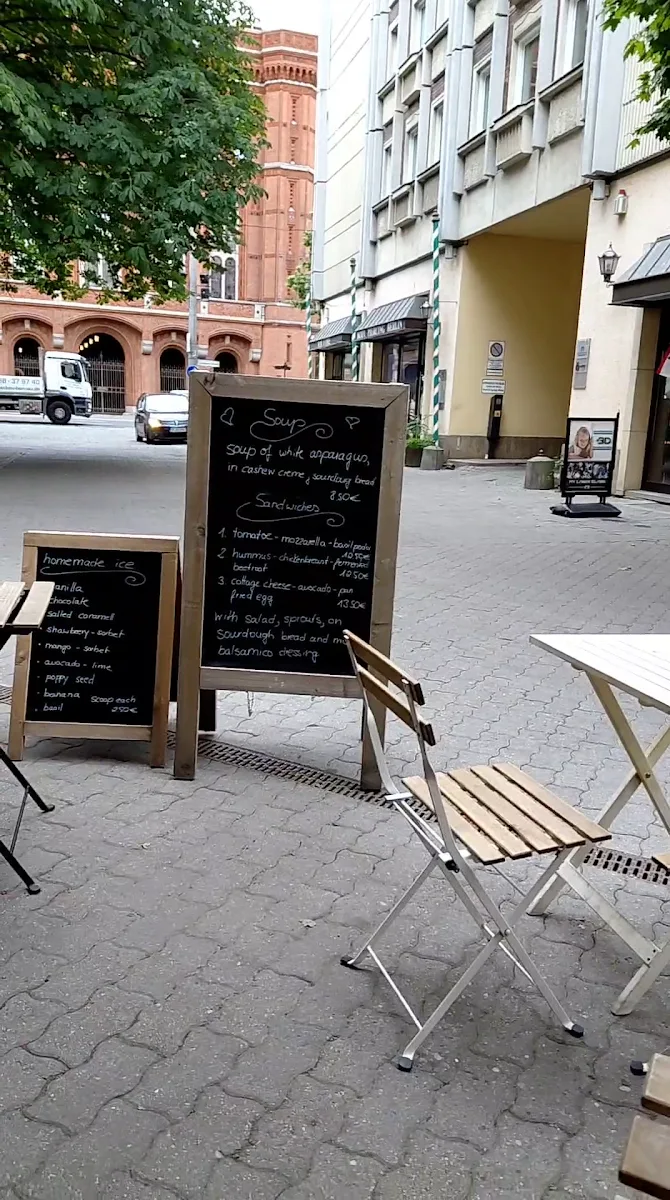 Soup
soup of white asparagus,
in cashew creme, sourdoug bread
8.50€
Sandwiches
1. tomatoe - mozzarella - basil pesto
10.50€
2. hummus - chickenbreast - fermented
beetroot 10.50€
3. cottage cheese - avocado - pan
fried egg 13.50€
with salad, sprouts, on
sourdough bread and
balsamico dressing
homemade ice
vanilla
chocolate
salted caramell
strawberry - sorbet
mango - sorbet
avocado - lime
poppy seed
banana scoop each
basil 2.50€
3D